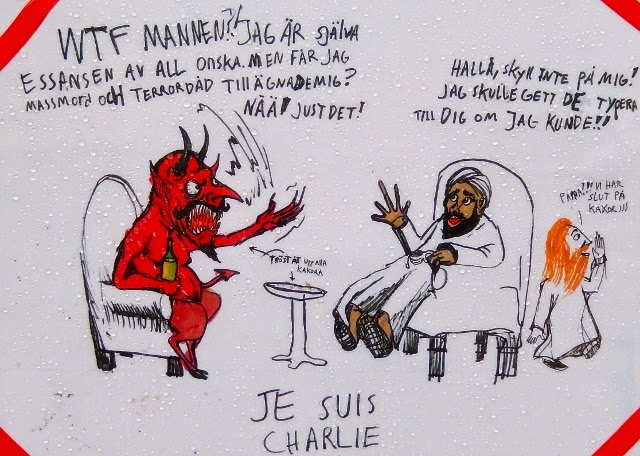 WTF MANNEN?! JAG ÄR SJÄLVA
ESSANSEN AV ALL ONSKA. MEN FÅR JAG
MASSMORD OCH TERRORDÅD TILLÄGNADE MIG?
NÄÄ! JUST DET!
HALLÅ, SKYLL INTE PÅ MIG!
JAG SKULLE GETT DE TYPERNA
TILL DIG OM JAG KUNDE!!
PAPPA!!! VI HAR
SLUT PÅ
KAKOR
TRÖSTÄT UPP ALLA
KAKORA
JE SUIS
CHARLIE